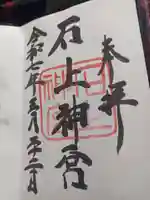 奉拝
石上神宮
令和七年五月二十二日